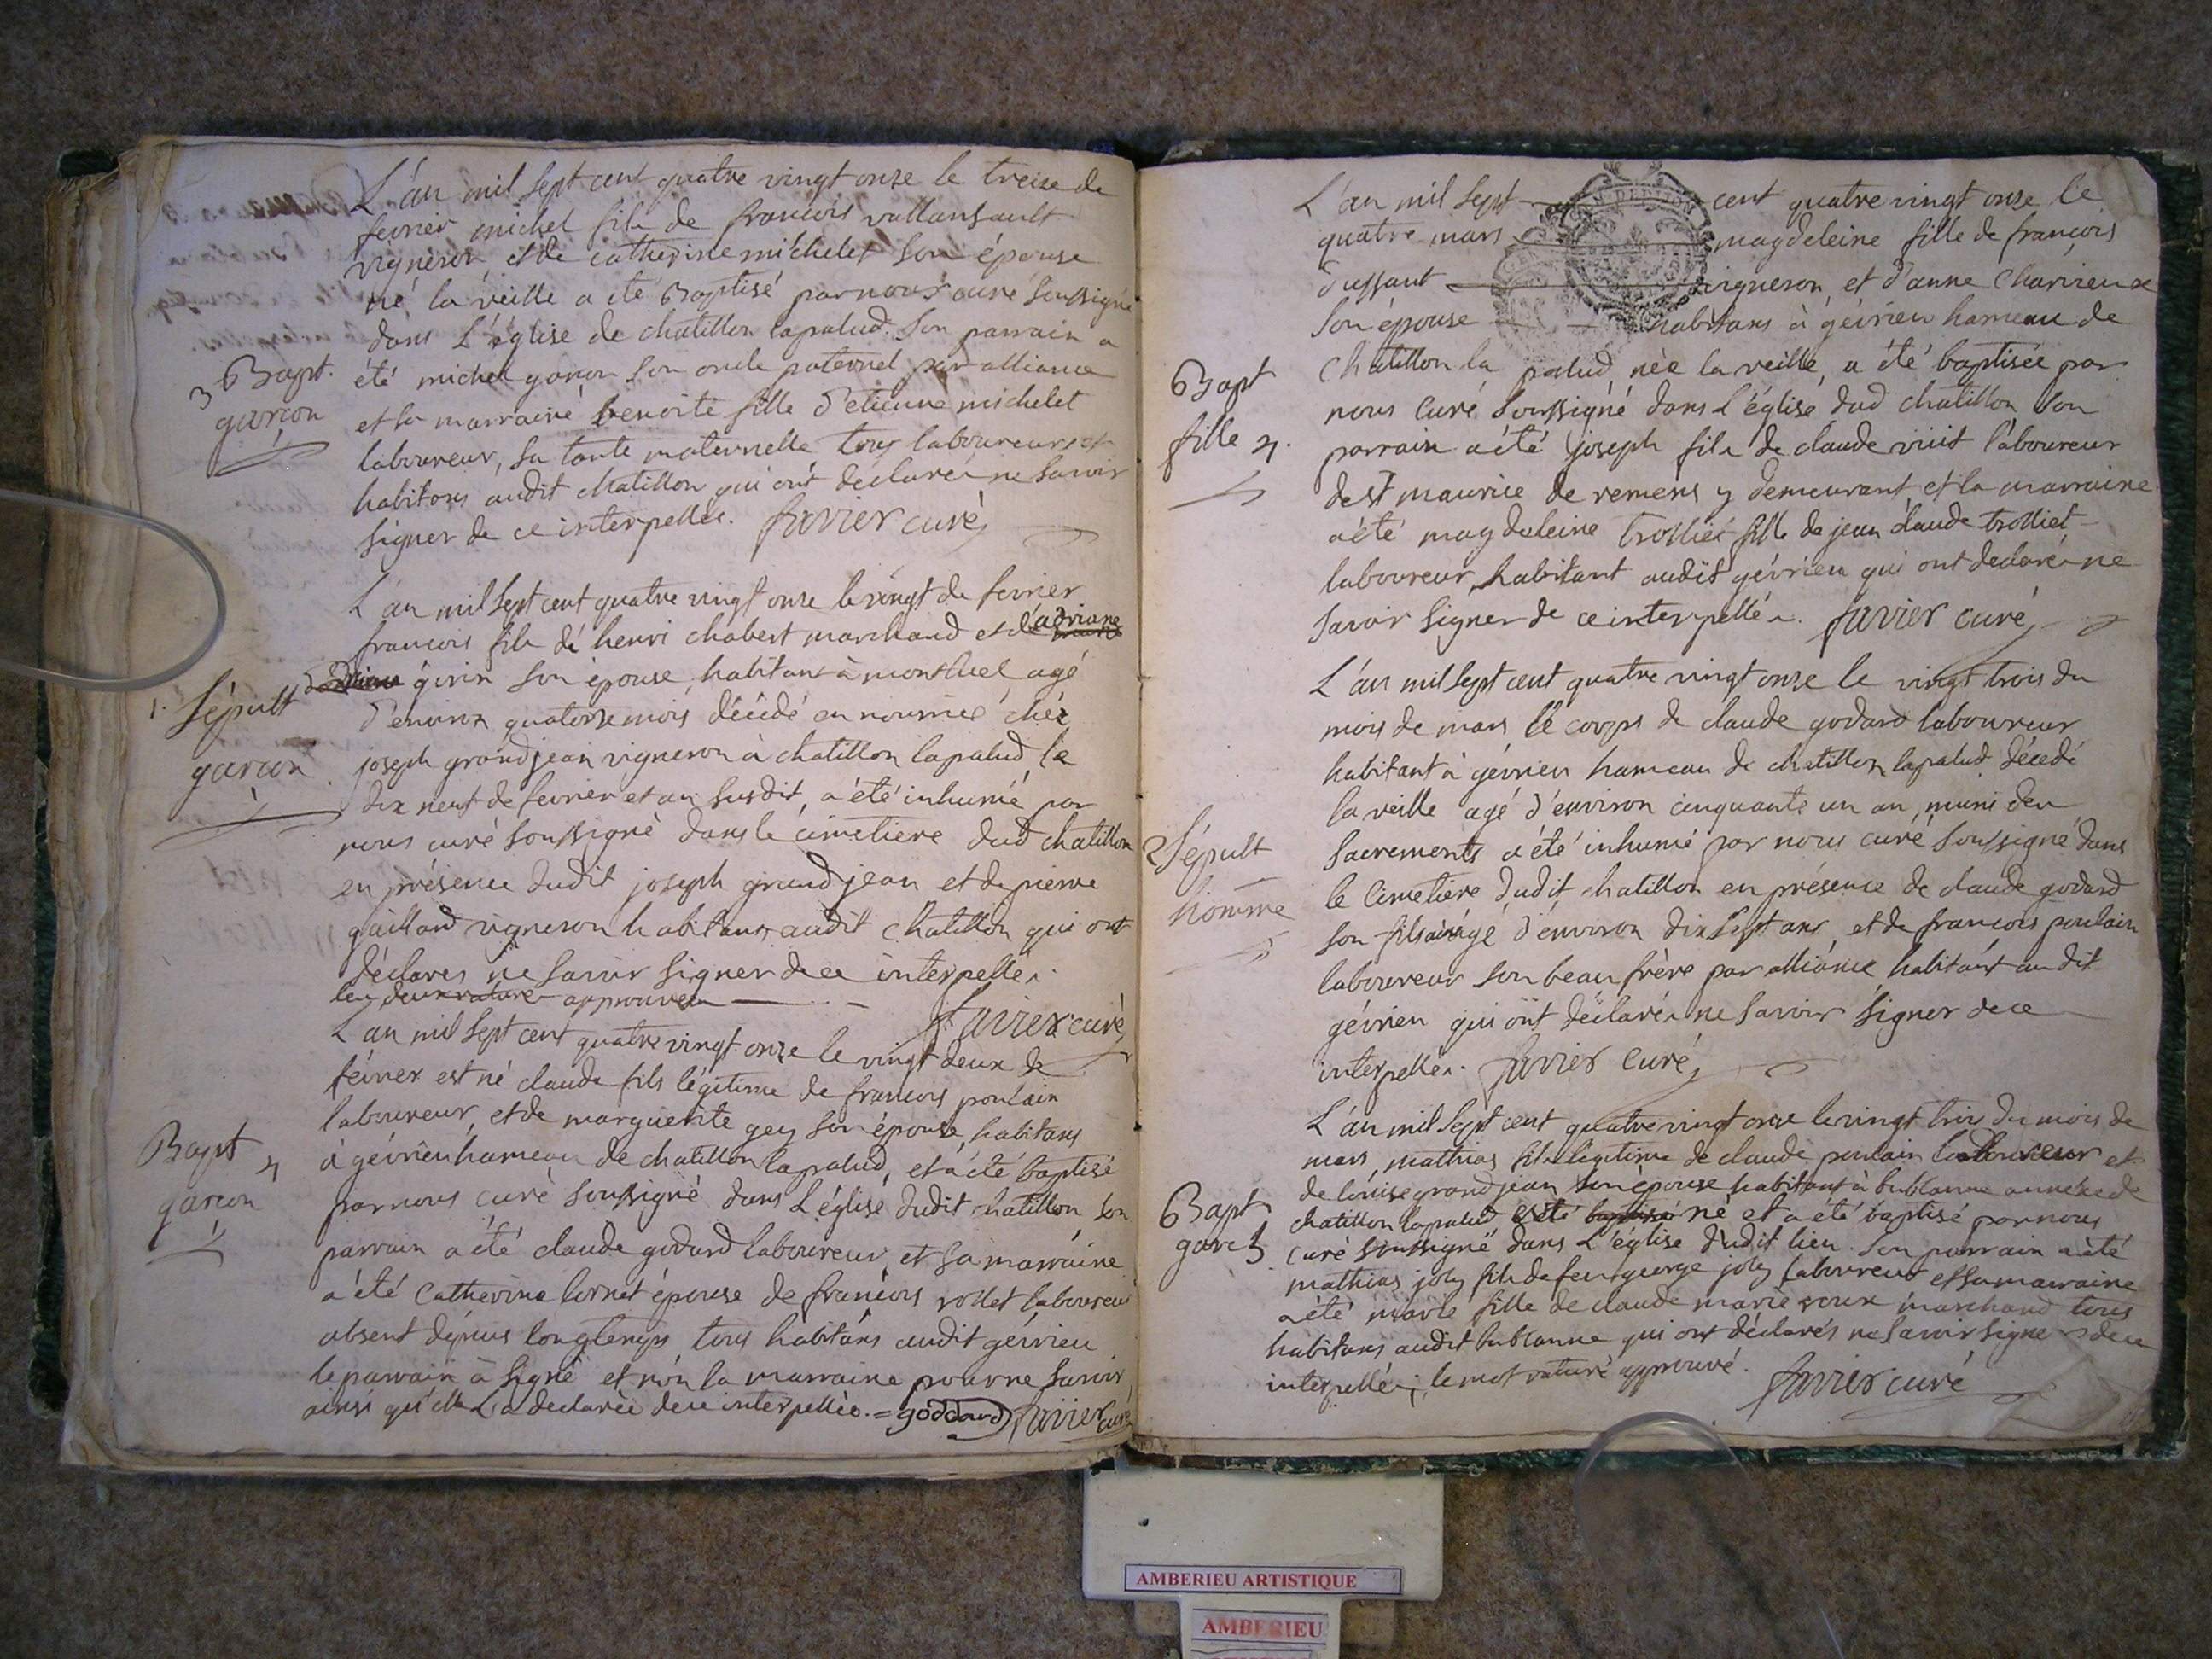 L'an mil sept cent quatre vingt onze le treize de
fevrier michel fils de francois vallansault
vigneron et de catherine michelet son épouse
né la veille a été Baptisé par nous curé soussigné
dans L'église de chatillon lapalud. Son parrain a
été michel gonon son oncle paternel par alliance
et la marraine benoite fille d'etienne michelet
laboureur, sa tante maternelle tous laboureurs et
habitans audit chatillon qui ont déclarés ne savoir
signer de ce interpellés. favier curé
3 Bapt.
garcon
L'an mil sept cent quatre vingt onze le vingt de fevrier
francois fils de henri chabert marchand et d'adriane
givin son épouse, habitans à montluel agé
d'environ quatorze mois décédé en nourrice chéz
joseph grandjean vigneron à chatillon lapalud le
dix neuf de fevrier et an susdit, a été inhumé par
nous curé soussigné dans le cimetiere dud chatillon
en présence dudit joseph grandjean et de pierre
gaillard vigneron habitans audit chatillon qui ont
déclarés ne savoir signer de ce interpellés.
les deux ratures approuvées
favier curé
1. Sépult
garcon
L'an mil sept cent quatre vingt onze le vingt deux de
février est né claude fils légitime de francois poulain
laboureur, et de marguerite gey son épouse, habitans
à gévrieu hameau de chatillon lapalud, et a été baptisé
par nous curé soussigné dans L'église dudit chatillon son
parrain a été claude godard laboureur, et sa marraine
a été Catherine cornet épouse de francois rollet laboureur
absent depuis longtemps tous habitans audit gévrieu
le parrain a signé et non la marraine pour ne savoir,
ainsi qu'elle L'a declarée de ce interpellée. = goddard favier curé
Bapt 4
garcon
L'an mil sept cent quatre vingt onze le
quatre mars magdeleine fille de françois
dussaut vigneron, et d'anne Charvieux
son épouse habitans à gévrieu hameau de
Chatillon la palud, née la veille, a été baptisée par
nous Curé soussigné dans L'église dud chatillon son
parrain a été joseph fils de claude viiit laboureur
de st maurice de remens y demeurant, et la marraine
a été magdeleine trolliet fille de jean claude trolliet
laboureur, habitant audit gévrieu qui ont declarés ne
savoir signer de ce interpellés. favier curé
Bapt
fille 4.
L'an mil sept cent quatre vingt onze le vingt trois du
mois de mars le corps de claude godard laboureur
habitant à gévrieu hameau de chatillon lapalud décedé
la veille agé d'environ cinquante un an, muni des
sacrements a été inhumé par nous curé soussigné dans
le Cimetiere dudit chatillon en présence de claude godard
son fils ainé agé d'environ dix sept ans, et de francois poulain
laboureur son beau frère par alliance habitant audit
gévrieu qui ont déclarés ne savoir signer de ce
interpellés. favier curé
2 Sépult
homme
L'an mil sept cent quatre vingt onze le vingt trois du mois de
mars, mathias fils légitime de claude poulain laboureur et
de louise grandjean son épouse habitans à bublanne annéxe de
chatillon lapalud est né et a été baptisé par nous
curé soussigné dans L'église dudit lieu. Son parrain a été
mathias joly fils de feu george joly laboureur et sa marraine
a été marie fille de claude marie roux marchand tous
habitans audit bublanne qui ont déclarés ne savoir signer de ce
interpellés; le mot raturé approuvé. favier curé
Bapt
garc 5
AMBERIEU ARTISTIQUE
AMBERIEU